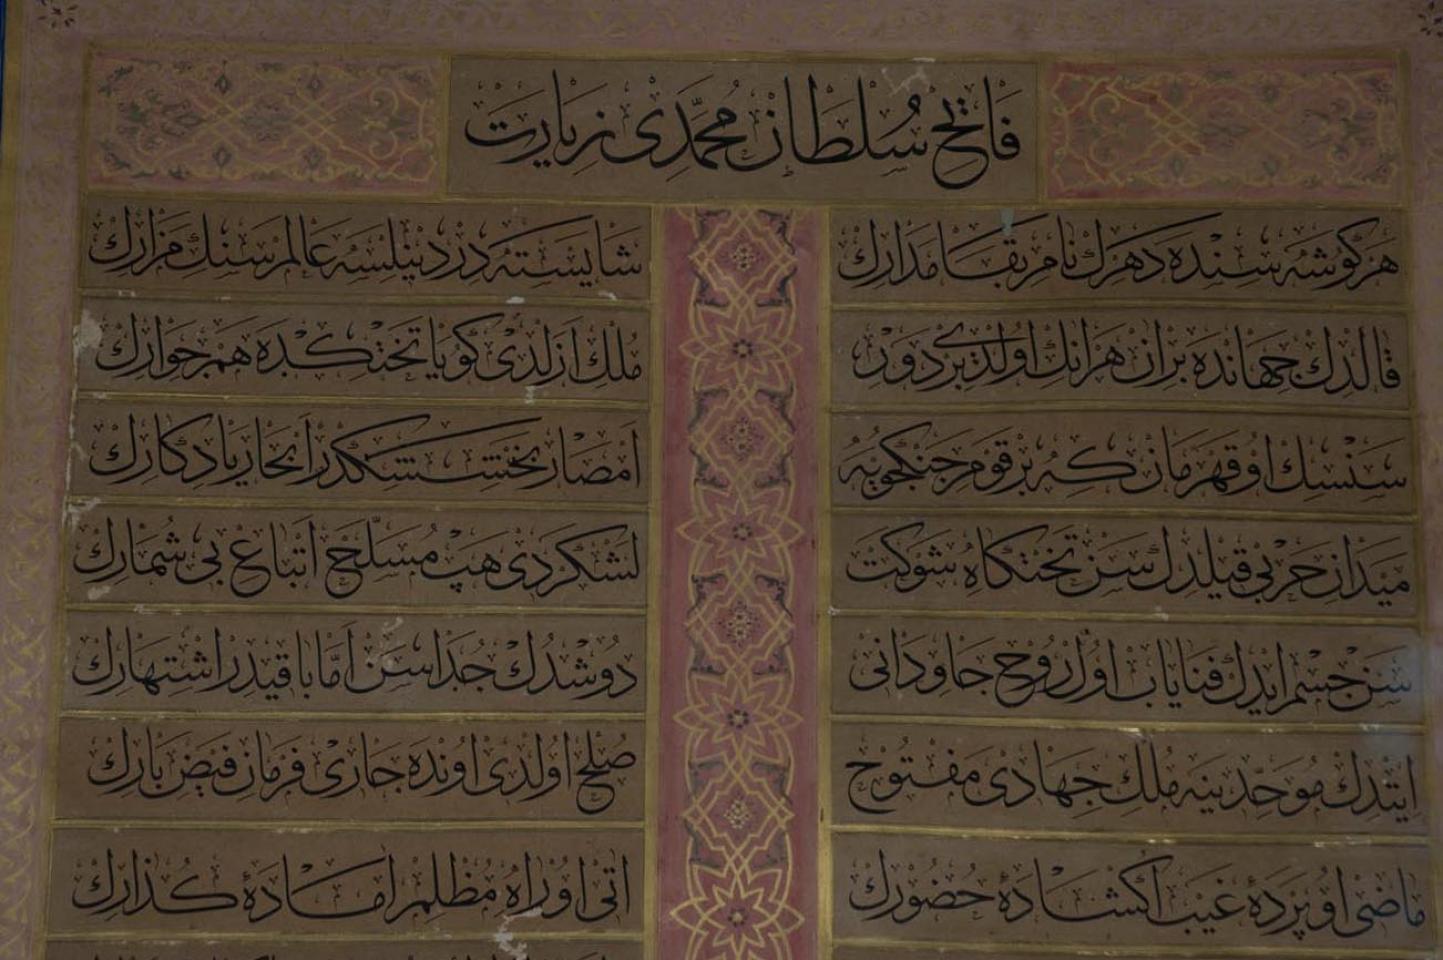 فَاتِحْ سُلْطَانْ مُحَمَّدِى زِيَارَتْ
هَرْ گُوشَه سِنْدَه دَهْرِكْ نَامْ بَقَا مَدَارِكْ
شَايَسْتَه دِرْ دِنِيلْسَه عَالَمْ سَنِكْ مَزَارِكْ
قَالْدِكْ جِهَانْدَه بِرْ آنْ هَرْ آنِكْ اُولْدِى بِرْ دَوْرْ
مُلْكِ اَزَلْدِى گُويَا تَخْتِكْدَه هَمْ جِوَارِكْ
سَنْسِكْ اُو قَهْرَمَانْ كِه بِرْ قَوْمِ جَنْگْجُويَه
اَمْصَارْ بَخْشِشِكْدِرْ اَبْحَارْ يَادِگَارِكْ
مَيْدَانِ حَرْبِى قِيلْدِكْ سَنْ تَخْتْگَاهِ شَوْكَتْ
لَشْكَرْدِى هَپْ مُسَلَّحْ اَتْبَاعِ بِى شُمَارِكْ
سَنْ جِسْمْ اِيدِكْ فَنَايَابْ اُولْ رُوحِ جَاوِدَانِى
دُوشْدُكْ جُدَا سَنْ اَمَّا بَاقِيدِرْ اِشْتِهَارِكْ
اِيتْدِكْ مُوَحِّدِينَه مُلْكِ جِهَادِى مَفْتُوحْ
صُلْحْ اُولْدِى اُونْدَه جَارِى فَرْمَانِ فَيْضْ بَارِكْ
مَاضِى اُو پَرْدَۀِ غَيْبْ اَكْشَادَۀِ حُضُورِكْ
آتِى اُو رَاهِ مُظْلِمْ آمَادَۀِ گُذَارِكْ